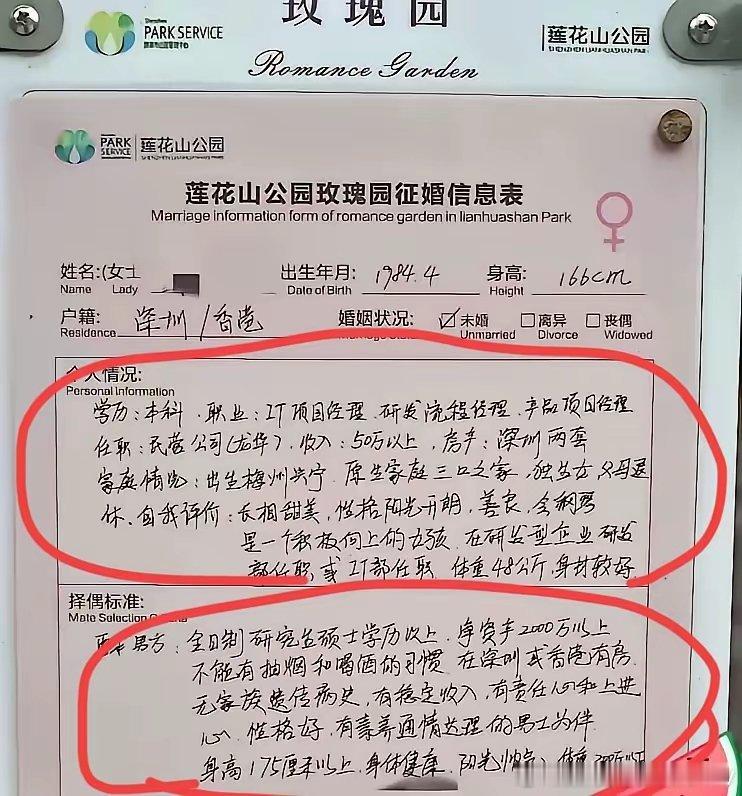 玫瑰园
Shenzhen
PARK SERVICE
莲花山公园
Romance Garden
PARK SERVICE 莲花山公园
莲花山公园玫瑰园征婚信息表
Marriage information form of romance garden in lianhuashan Park
姓名:(女士 出生年月: 1984.4 身高: 166cm
Name Lady Date of Birth Height
户籍: 深圳/香港 婚姻状况: ☑未婚 □离异 □丧偶
Residence Unmarried Divorce Widowed
个人情况:
Personal Information
学历:本科、职业:IT项目经理、研发流程经理、产品项目经理
任职:民营公司(龙华)、收入:50万以上,房产:深圳两套
家庭情况:出生梅州兴宁、原生家庭三口之家,独生女,父母退
休、自我评价:长相甜美,性格阳光开朗,善良,会
是一个积极向上的女孩、在研发型企业研发
部任职或IT部任职、体重48公斤,身材较好
择偶标准:
Mate Selection
要求男方:全日制研究生硕士学历以上,净资产2000万以上
不能有抽烟和喝酒的习惯、在深圳或香港有房、
无家族遗传病史,有稳定收入,有责任心和上进
心、性格好,有素养通情达理的男士为伴
身高175厘米以上,身体健康,阳光帅气,体重